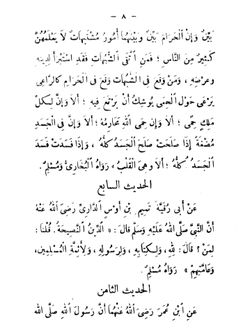 - ٨ -
بَيِّنٌ وَإِنَّ الْحَرَامَ بَيِّنٌ وَبَيْنَهُمَا أُمُورٌ مُشْتَبِهَاتٌ لَا يَعْلَمُهُنَّ
كَثِيرٌ مِنَ النَّاسِ ؛ فَمَنِ اتَّقَى الشُّبُهَاتِ فَقَدِ اسْتَبْرَأَ لِدِينِهِ
وَعِرْضِهِ ، وَمَنْ وَقَعَ فِي الشُّبُهَاتِ وَقَعَ فِي الْحَرَامِ كَالرَّاعِي
يَرْعَى حَوْلَ الْحِمَى يُوشِكُ أَنْ يَرْتَعَ فِيهِ ؛ أَلَا وَإِنَّ لِكُلِّ
مَلِكٍ حِمًى ؛ أَلَا وَإِنَّ حِمَى اللهِ مَحَارِمُهُ ؛ أَلَا وَإِنَّ فِي الْجَسَدِ
مُضْغَةً إِذَا صَلَحَتْ صَلَحَ الْجَسَدُ كُلُّهُ ، وَإِذَا فَسَدَتْ فَسَدَ
الْجَسَدُ كُلُّهُ ؛ أَلَا وَهِيَ الْقَلْبُ » رَوَاهُ الْبُخَارِيُّ وَمُسْلِمٌ .
الحديث السابع
عَنْ أَبِي رُقَيَّةَ تَمِيمِ بْنِ أَوْسٍ الدَّارِيِّ رَضِيَ اللهُ عَنْهُ
أَنَّ النَّبِيَّ صَلَّى اللهُ عَلَيْهِ وَسَلَّمَ قَالَ : « الدِّينُ النَّصِيحَةُ . قُلْنَا :
لِمَنْ ؟ قَالَ : لِلهِ ، وَلِكِتَابِهِ ، وَلِرَسُولِهِ ، وَلِأَئِمَّةِ الْمُسْلِمِينَ ،
وَعَامَّتِهِمْ » رَوَاهُ مُسْلِمٌ .
الحديث الثامن
عَنِ ابْنِ عُمَرَ رَضِيَ اللهُ عَنْهُمَا أَنَّ رَسُولَ اللهِ صَلَّى اللهُ